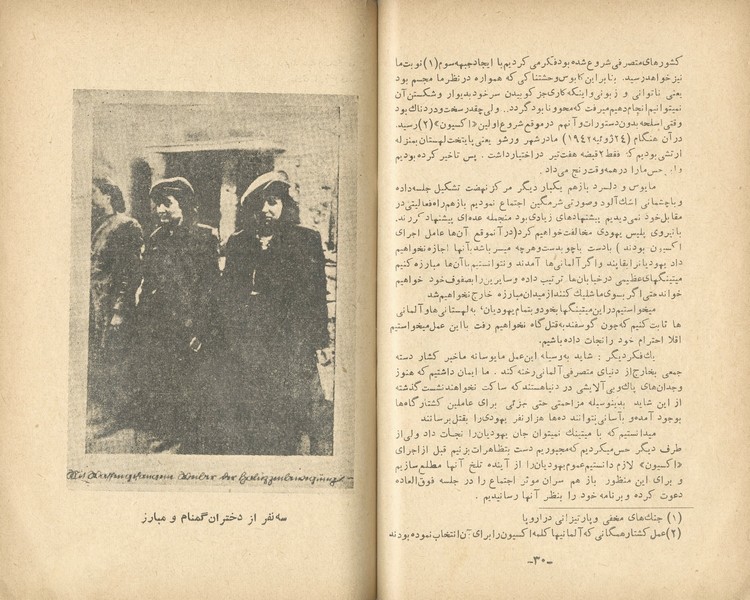 کشورهای متصرفی شروع شده بود فکر می کردیم با ایجاد جبهه سوم (۱) نوبت ما
نیز خواهد رسید. بنابراین کابوس وحشتناکی که همواره در نظر ما مجسم بود
یعنی ناتوانی و زبونی واینکه کاری جز کوبیدن سر خود بدیوار و شکستن آن
نمیتوانیم انجام دهیم میرفت که محو و نابود گردد.. ولی چقدر سخت و دردناک بود
وقتی اسلحه بدون دستورات و آنهم در موقع شروع اولین «اکسیون» (۲) رسید.
در آن هنگام (۲۴ ژوئیه ۱۹۴۲) ما در شهر ورشو یعنی پایتخت لهستان بمنزله
ارتشی بودیم که فقط ۲ قبضه هفت تیر در اختیار داشت. پس تاخیر کرده بودیم
حس ما را در همه وقت رنج می داد.
مایوس و دلسرد بازهم یکبار دیگر مرکز نهضت تشکیل جلسه داده
وباچشمانی اشک آلود وصورتی شرمگین اجتماع نمودیم بازهم راه فعالیتی در
مقابل خود نمی دیدیم پیشنهادهای زیادی بود منجمله عده ای پیشنهاد کردند.
با نیروی پلیس یهودی مخالفت خواهیم کرد (در آن موقع آن ها عامل اجرای
اکسیون بودند) بادست باچوبدست وهرچه میسر باشد بآنها اجازه نخواهیم
داد یهودیان را بقاپند واگر آلمانی ها آمدند ونتوانستیم با آن ها مبارزه کنیم
میتینگهای عظیمی در خیابان ها ترتیب داده و سایرین را بصفوف خود خواهیم
خواند حتی اگر بسوی ما شلیک کنند از میدان مبارزه خارج نخواهیم شد
میخواستیم در این میتینگها بخود و بتمام یهودیان، به لهستانی ها و آلمانی
ها ثابت کنیم که چون گوسفند به قتل گاه نخواهیم رفت با این عمل میخواستیم
اقلا احترام خود را نجات داده باشیم.
یک فکر دیگر : شاید به وسیله این عمل مایوسانه ما خبر کشار دسته
جمعی بخارج از دنیای متصرفی آلمانی رخنه کند. ما ایمان داشتیم که هنوز
وجدان های پاک و بی آلایشی در دنیا هستند که ساکت نخواهند نشست گذشته
از این شاید بدینوسیله مزاحمتی حتی جزئی برای عاملین کشتارگاه ها
بوجود آمده و بآسانی نتوانند ده ها هزار نفر یهودی را بقتل برسانند
میدانستیم که با میتینک نمیتوان جان یهودیان را نجات داد ولی از
طرف دیگر حس میکردیم که مجبوریم دست بتظاهرات بزنیم قبل از اجرای
«اکسیون» لازم دانستیم عموم یهودیان را از آینده تلخ آنها مطلع سازیم
و برای این منظور باز هم سران موثر اجتماع را در جلسه فوق العاده
دعوت کرده و برنامه خود را بنظر آنها رسانیدیم.
(۱) جنگ های مخفی و پارتیزانی در اروپا
(۲) عمل کشتار همگانی که آلمانیها کلمه اکسیون را برای آن انتخاب نموده بودند
-۳۰-
Mit Waffen
سه نفر از دختران گمنام و مبارز